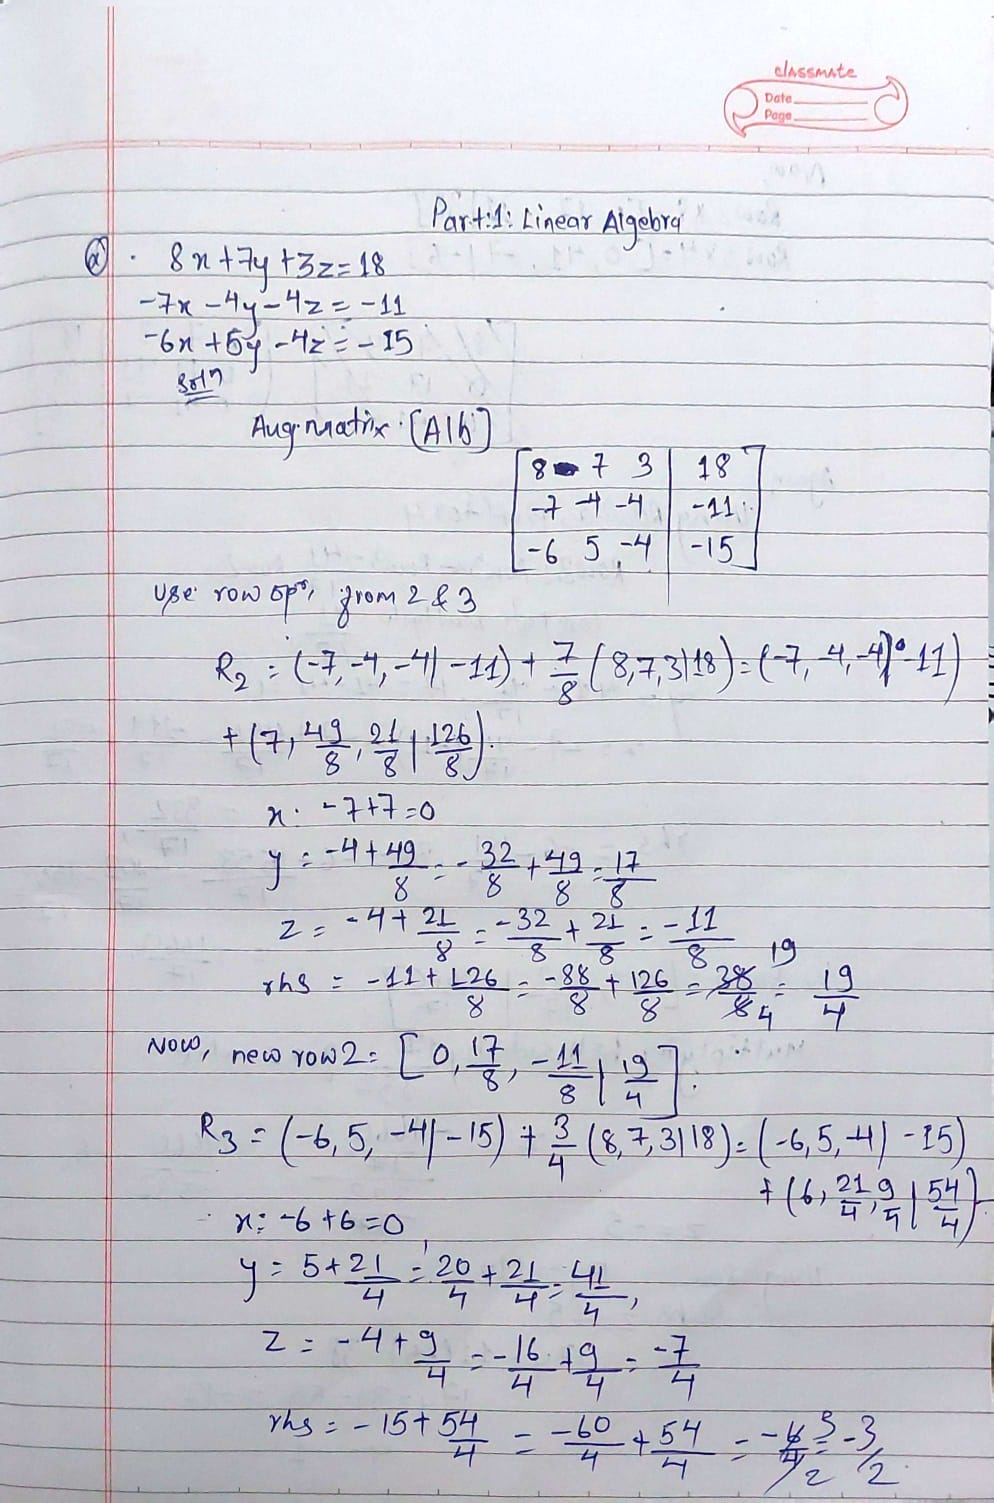 classmate
Date
Page
Part:1: Linear Algebra
(a) . 8x+7y+3z=18
-7x-4y-4z=-11
-6x+5y-4z=-15
Soln
Aug. matrix. [A|b]
8 7 3 | 18
-7 -4 -4 | -11
-6 5 -4 | -15
use row opr, from 2 & 3
R2 = (-7,-4,-4|-11) + 7/8 (8,7,3|18) = (-7, -4, -4|-11)
+ (7, 49/8, 21/8 | 126/8).
x: -7+7=0
y = -4+49/8 = -32/8 + 49/8 = 17/8
z = -4+21/8 = -32/8 + 21/8 = -11/8
rhs = -11+126/8 = -88/8 + 126/8 = 38/8 19/4 = 19/4
Now, new row2 = [0, 17/8, -11/8 | 19/4].
R3 = (-6, 5, -4|-15) + 3/4 (8,7,3|18) = (-6,5,-4|-15)
+ (6, 21/4, 9/4 | 54/4).
x: -6+6=0
y = 5+21/4 = 20/4 + 21/4 = 41/4,
z = -4+9/4 = -16/4 + 9/4 = -7/4
rhs = -15+54/4 = -60/4 + 54/4 = -6/4 3/2 = -3/2